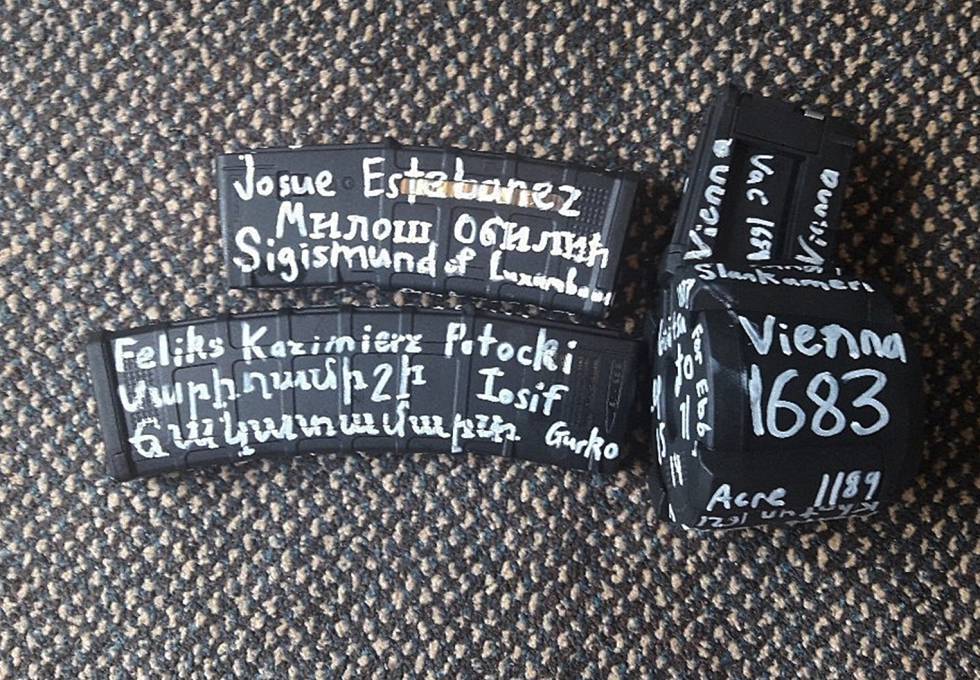 Josue Estebanez
Милош Обилић
Sigismund of Luxembourg
Feliks Kazimierz Potocki
Սարիղամիշի Iosif
Ճակատամարտը Gurko
Vienna
Vienna
Vienna
1683
Acre 1189